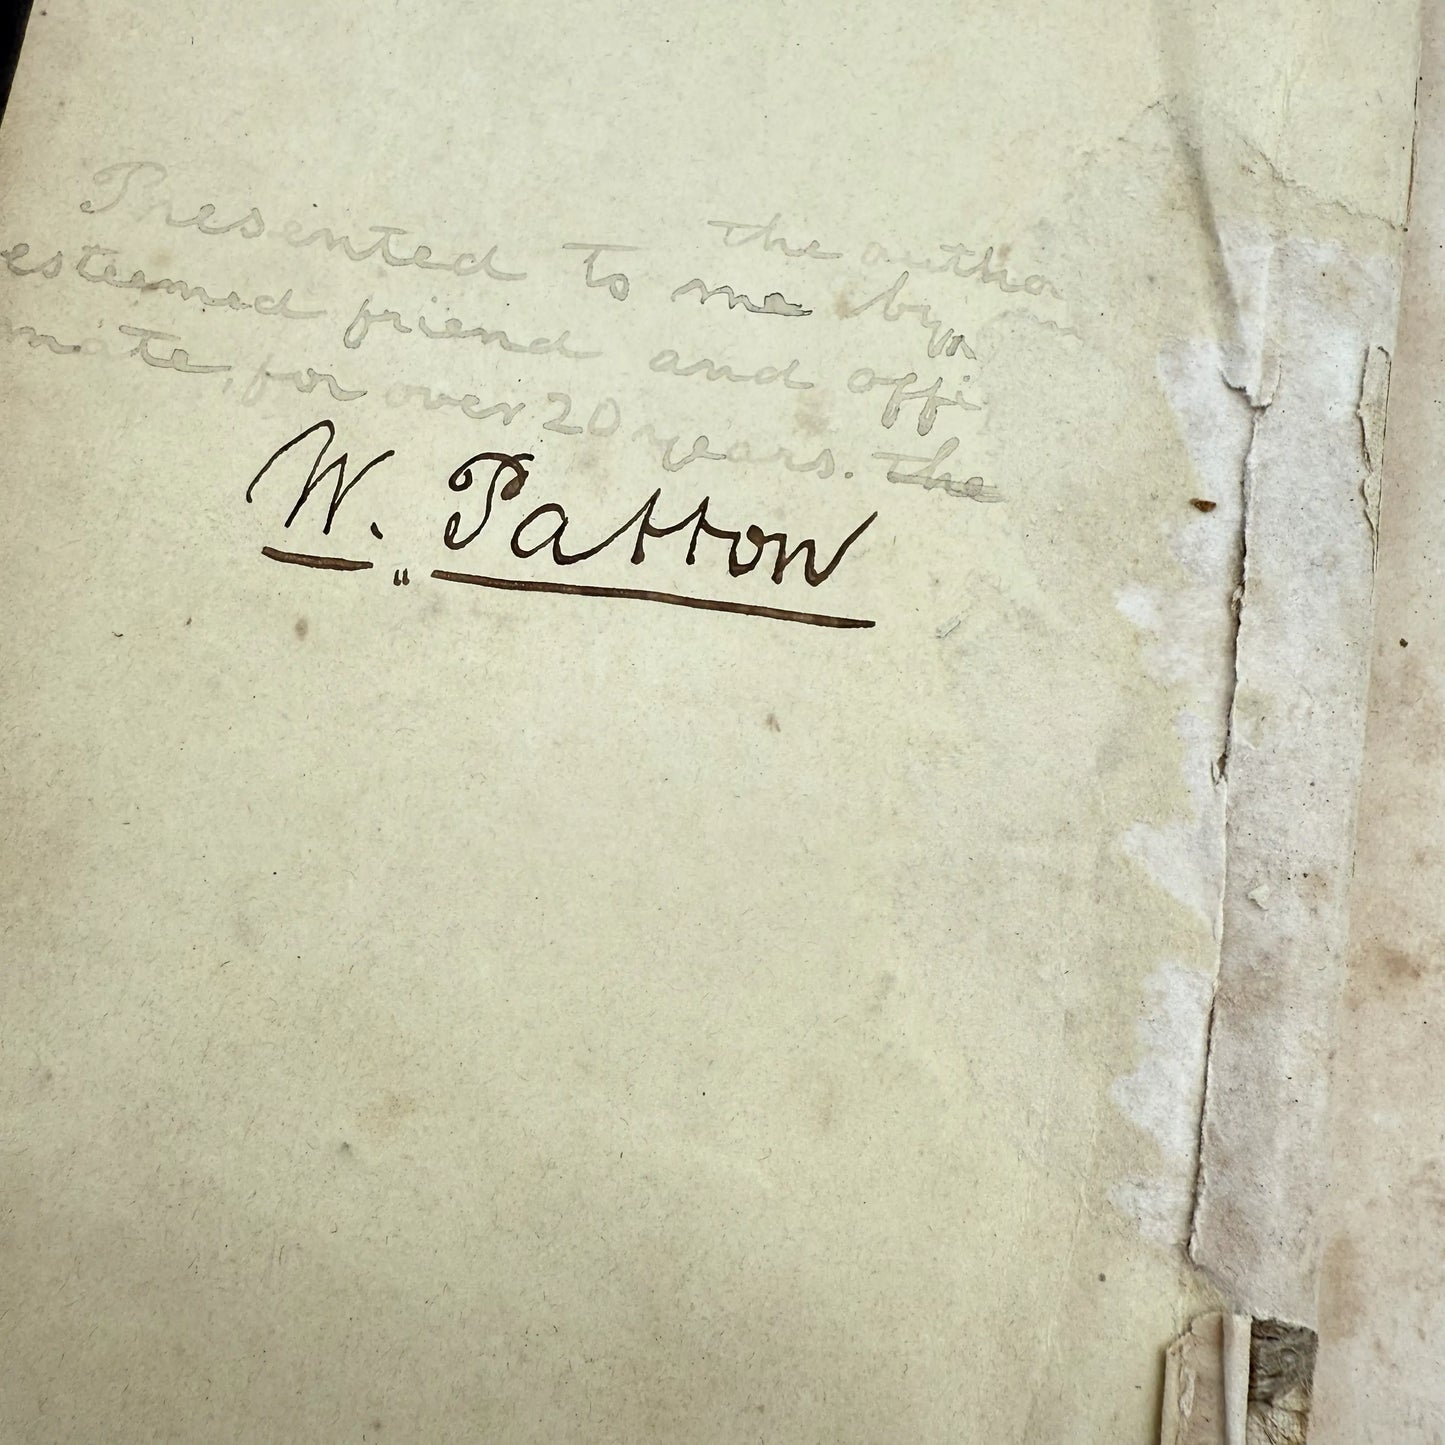 Presented to me by the author my
esteemed friend and offi
mate, for over 20 years. the
W. Patton